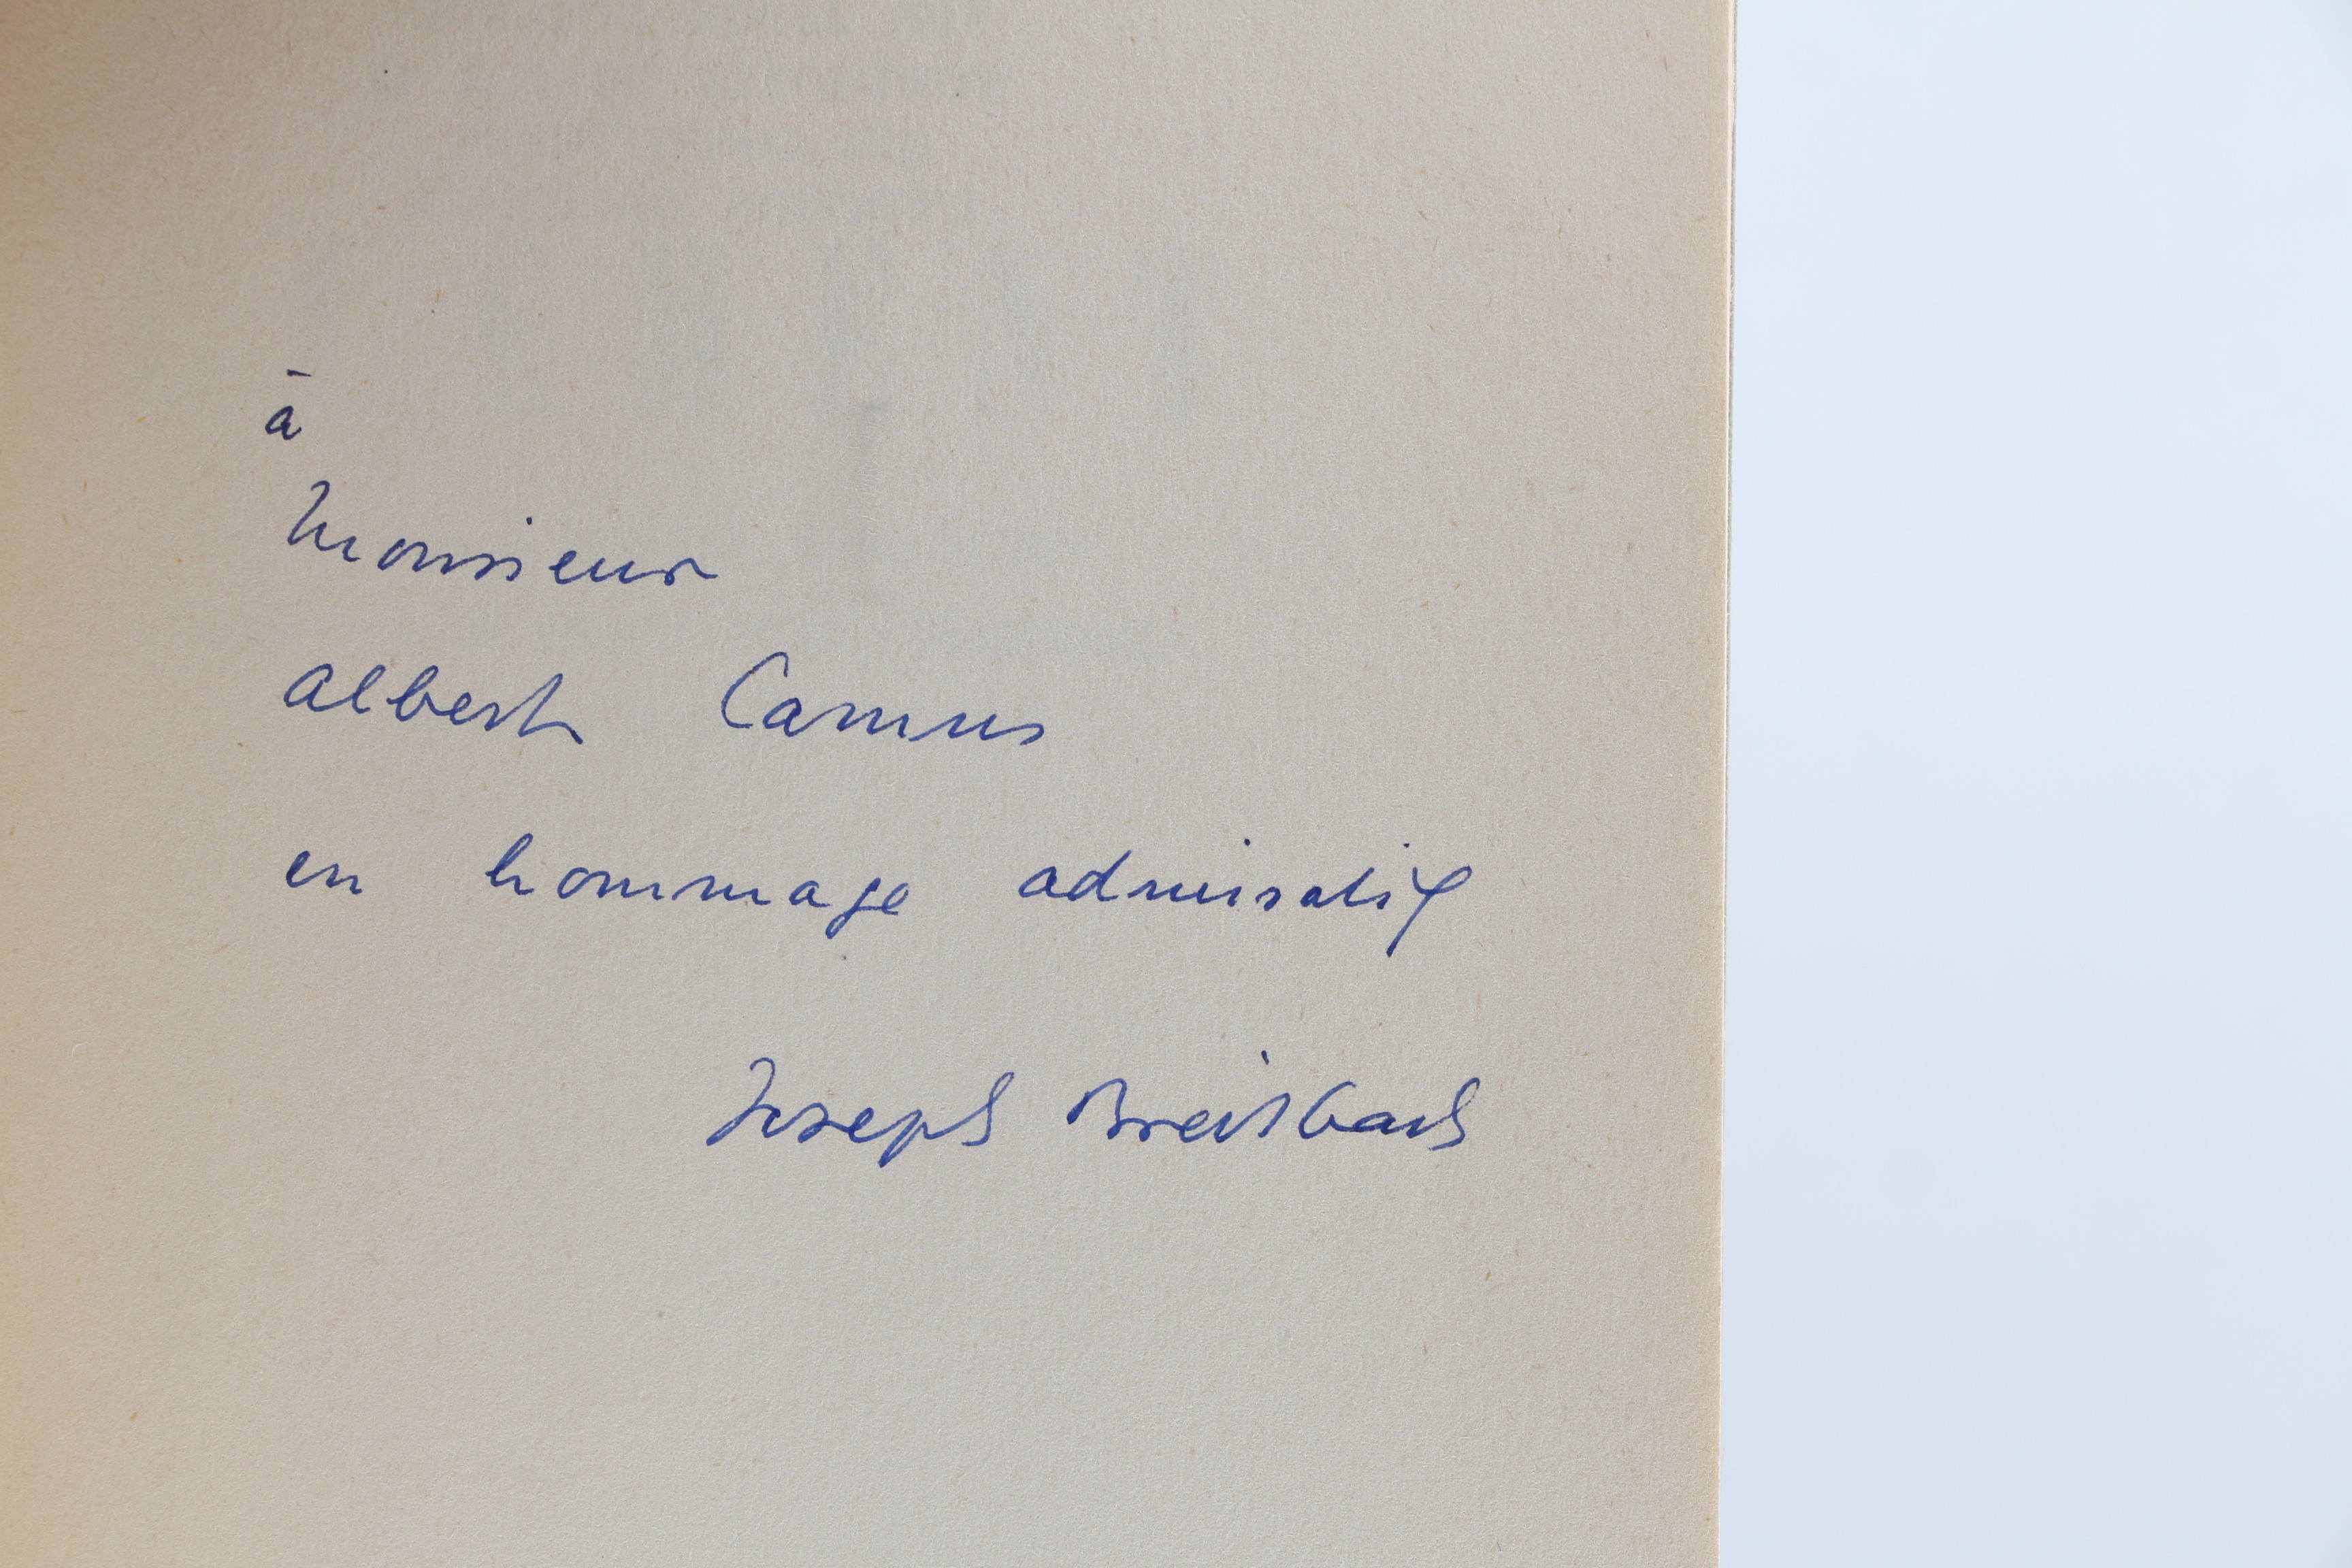 à
Monsieur
Albert Camus
en hommage admiratif
Joseph Breitbach